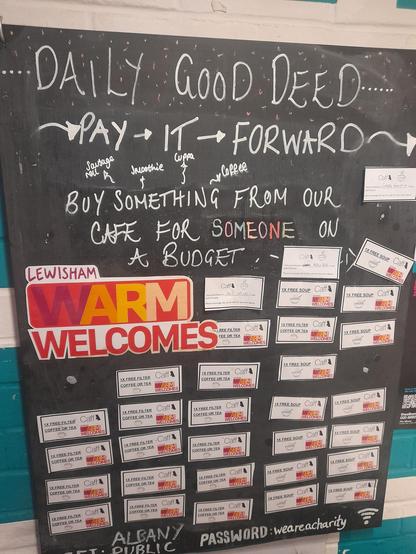 .....DAILY GOOD DEED......
→PAY→IT→FORWARD→
Sausage roll Smoothie Cuppa Coffee
BUY SOMETHING FROM OUR
CAFE FOR SOMEONE ON
A BUDGET.
LEWISHAM
WARM
WELCOMES
1X FREE SOUP
1X FREE SOUP
1X FREE SOUP
FREE FILTER
COFFEE OR TEA
1X FREE SOUP
1X FREE SOUP
1X FREE SOUP
1X FREE FILTER
COFFEE OR TEA
1X FREE FILTER
COFFEE OR TEA
1X FREE FILTER
COFFEE OR TEA
1X FREE FILTER
COFFEE OR TEA
1X FREE FILTER
COFFEE OR TEA
1X FREE SOUP
1X FREE SOUP
1X FREE FILTER
COFFEE OR TEA
1X FREE FILTER
COFFEE OR TEA
1X FREE FILTER
COFFEE OR TEA
1X FREE SOUP
1X FREE SOUP
1X FREE FILTER
COFFEE OR TEA
1X FREE FILTER
COFFEE OR TEA
1X FREE FILTER
COFFEE OR TEA
1X FREE SOUP
1X FREE SOUP
ALBANY
PUBLIC
PASSWORD: weareacharity